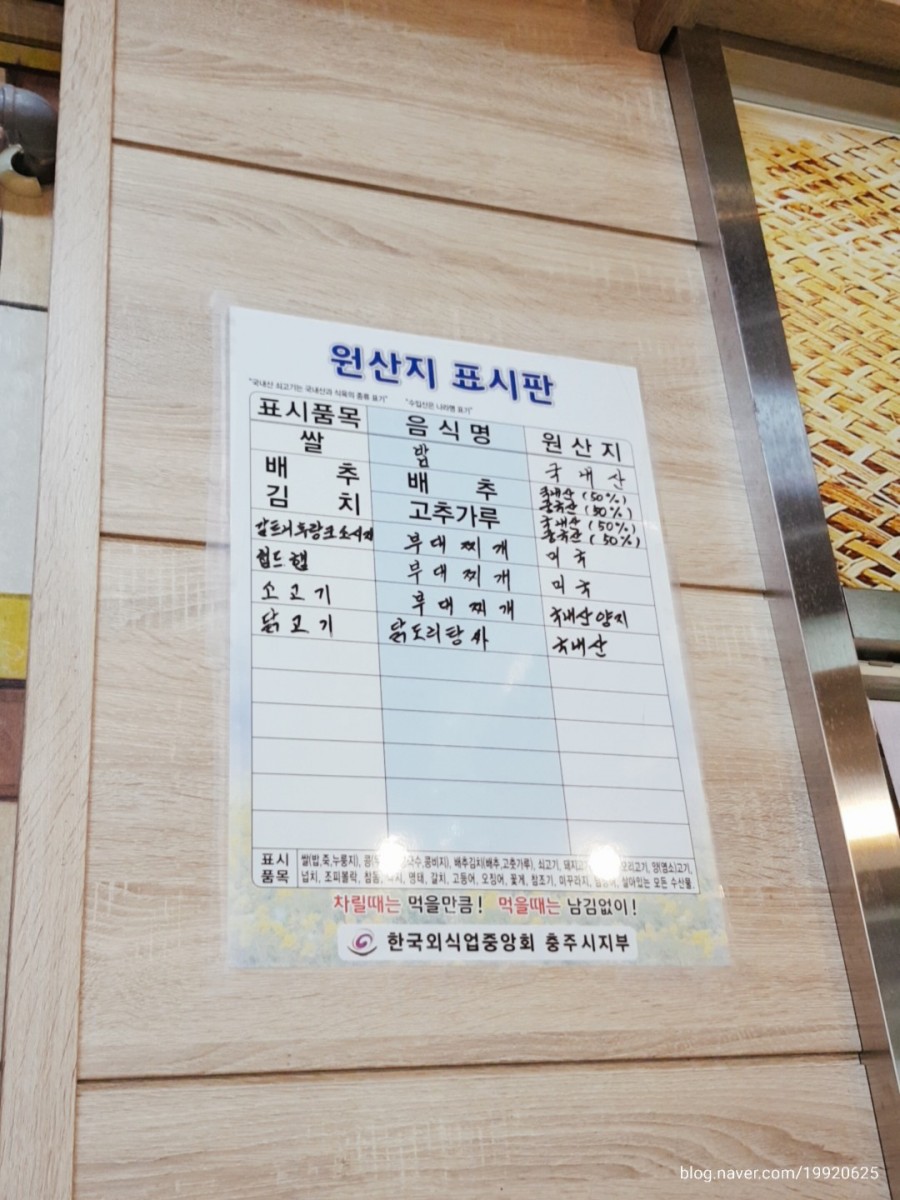 원산지 표시판
"국내산 쇠고기는 국내산과 식육의 종류 표기" "수입산은 나라명 표기"
표시품목 음식명 원산지
쌀 밥 국내산
배추 배추 국내산 (50%)
중국산 (50%)
김치 고추가루 국내산 (50%)
중국산 (50%)
부대찌개 미국
햄 부대찌개 미국
소고기 부대찌개 국내산 양지
닭고기 닭도리탕 국내산
표시 쌀(밥,죽,누룽지), 배추김치(배추,고춧가루), 쇠고기, 오리고기, 양(염소)고기,
품목 넙치, 조피볼락, 명태, 갈치, 고등어, 오징어, 꽃게, 참조기, 미꾸라지, 살아있는 모든 수산물.
차릴때는 먹을만큼! 먹을때는 남김없이!
한국외식업중앙회 충주시지부
blog.naver.com/19920625